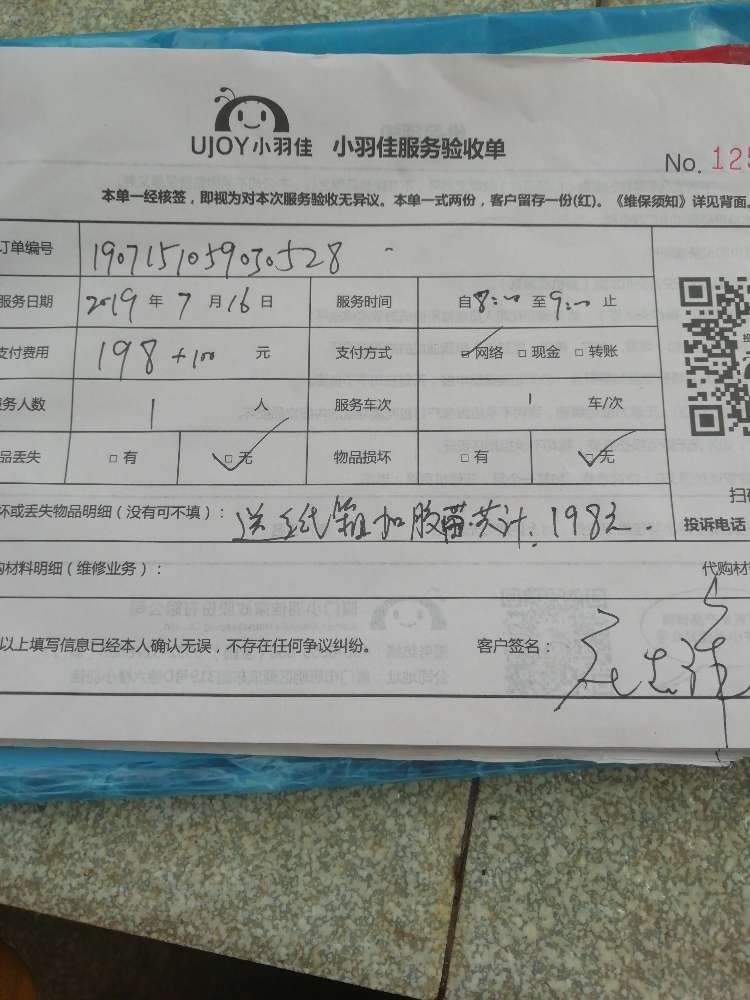 UJOY小羽佳 小羽佳服务验收单
No. 125
本单一经核签，即视为对本次服务验收无异议。本单一式两份，客户留存一份(红)。《维保须知》详见背面。
订单编号 190715105903528
服务日期 2019 年 7 月 16 日 服务时间 自 8:00 至 9:00 止
支付费用 198+100 元 支付方式 网络 □现金 □转账
服务人数 1 人 服务车次 1 车/次
品丢失 □有 □无 物品损坏 □有 □无
坏或丢失物品明细（没有可不填）： 送 纸箱加胶带共计：198元.
扫
投诉电话
购材料明细（维修业务）： 代购材
以上填写信息已经本人确认无误，不存在任何争议纠纷。 客户签名：